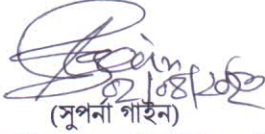 ০২/০৪/২০২৩
(সুপর্না গাইন)